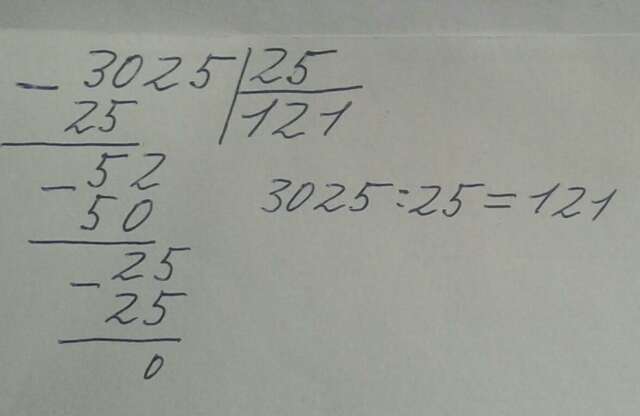 - 3025 | 25
25 | 121
- 52
50
3025:25=121
- 25
25
0